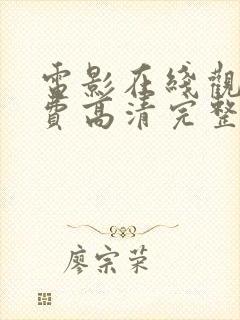 電影在綫觀
費高清完整
廖宗荣